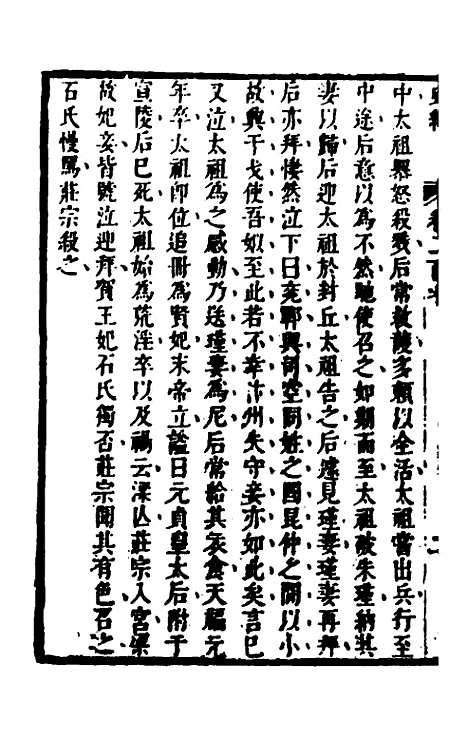 中太祖暴怒殺戮后常救護多賴以全活太祖嘗出兵行至
中途后意以為不然馳使召之如期而至太祖破朱瑾納其
妻以歸后迎太祖於封丘太祖告之后遽見瑾妻瑾妻再拜
后亦拜悽然泣下曰兗鄆與司空同姓之國昆仲之間以小
故興干戈使吾姒至此若不幸汴州失守妾亦如此矣言已
又泣太祖為之感動乃送瑾妻為尼后常給其衣食天祐元
年卒太祖即位追冊為賢妃末帝立謚曰元貞皇太后附于
宣陵后已死太祖始為荒淫卒以及禍云梁亾莊宗入宮梁
故妃妾皆號泣迎拜賀王妃石氏獨否莊宗聞其有色召之
石氏慢罵莊宗殺之